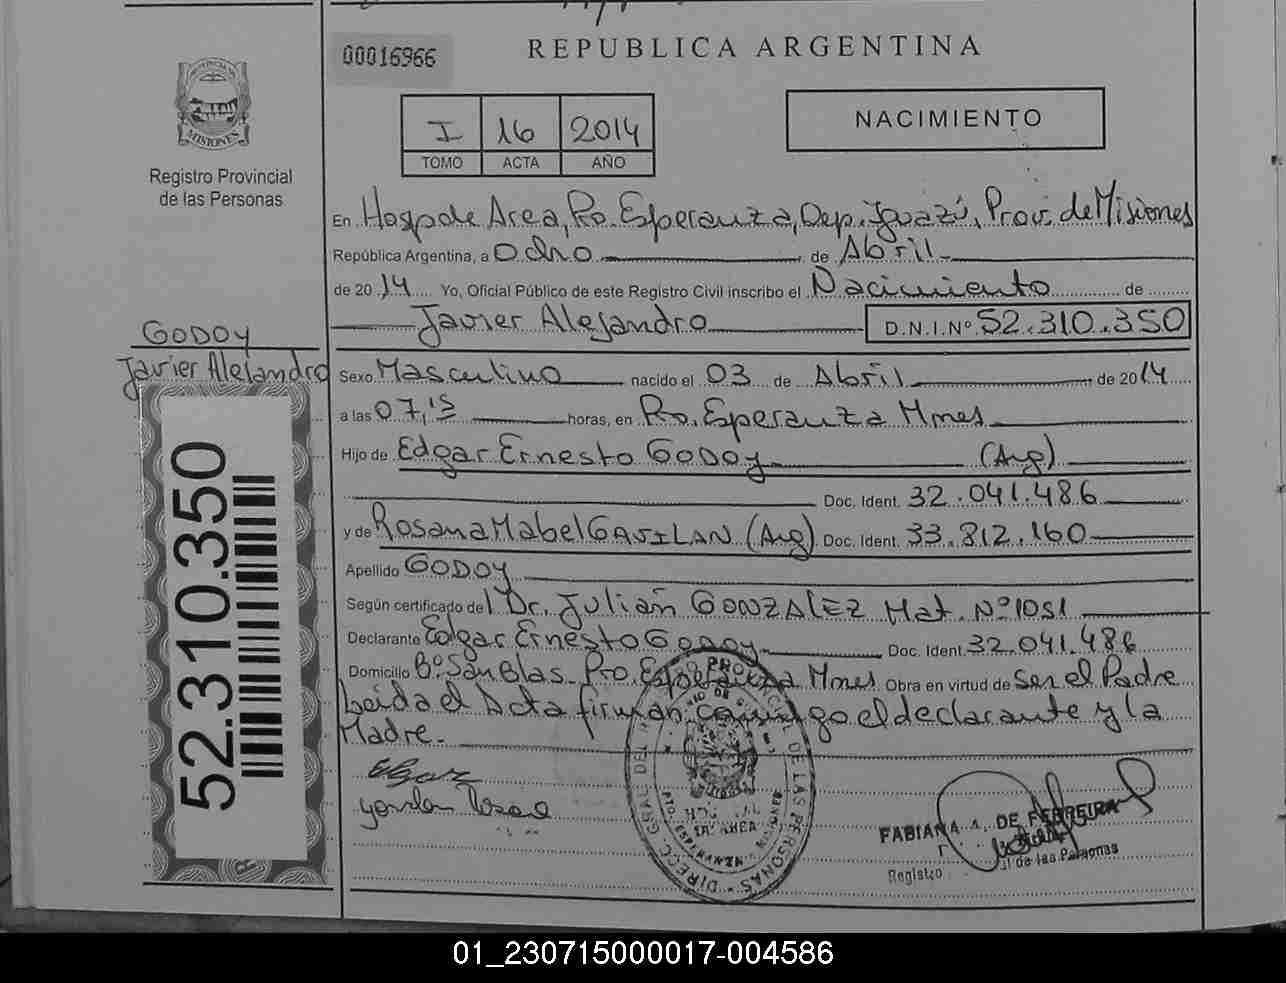 00016966
REPUBLICA ARGENTINA
I 16 2014
TOMO ACTA AÑO
NACIMIENTO
PROVINCIA DE
MISIONES
Registro Provincial
de las Personas
En Hosp de Area, Pto. Esperanza, Dep. Iguazú, Prov. de Misiones
República Argentina, a Ocho de Abril
de 2014 Yo, Oficial Público de este Registro Civil inscribo el Nacimiento de
Javier Alejandro D.N.I.Nº 52.310.350
GODOY
Javier Alejandro
52.310.350
Sexo Masculino nacido el 03 de Abril de 2014
a las 07,15 horas, en Pto. Esperanza Mnes
Hijo de Edgar Ernesto GODOY (Arg)
Doc. Ident. 32.041.486
y de Rosana Mabel GAVILAN (Arg) Doc. Ident. 33.812.160
Apellido GODOY
Según certificado del Dr. Julián GONZALEZ Mat. Nº 1051
Declarante Edgar Ernesto GODOY Doc. Ident. 32.041.486
Domicilio Bº San Blas. Pto. Esperanza Mnes Obra en virtud de Ser el Padre
Leida el Acta firman conmigo el declarante y la
Madre.
DIRECC. GRAL DEL PROVINCIAL DE LAS PERSONAS
PTO. ESPERANZA MISIONES
FABIANA A. DE FERREIRA
Registro de las Personas
01_230715000017-004586